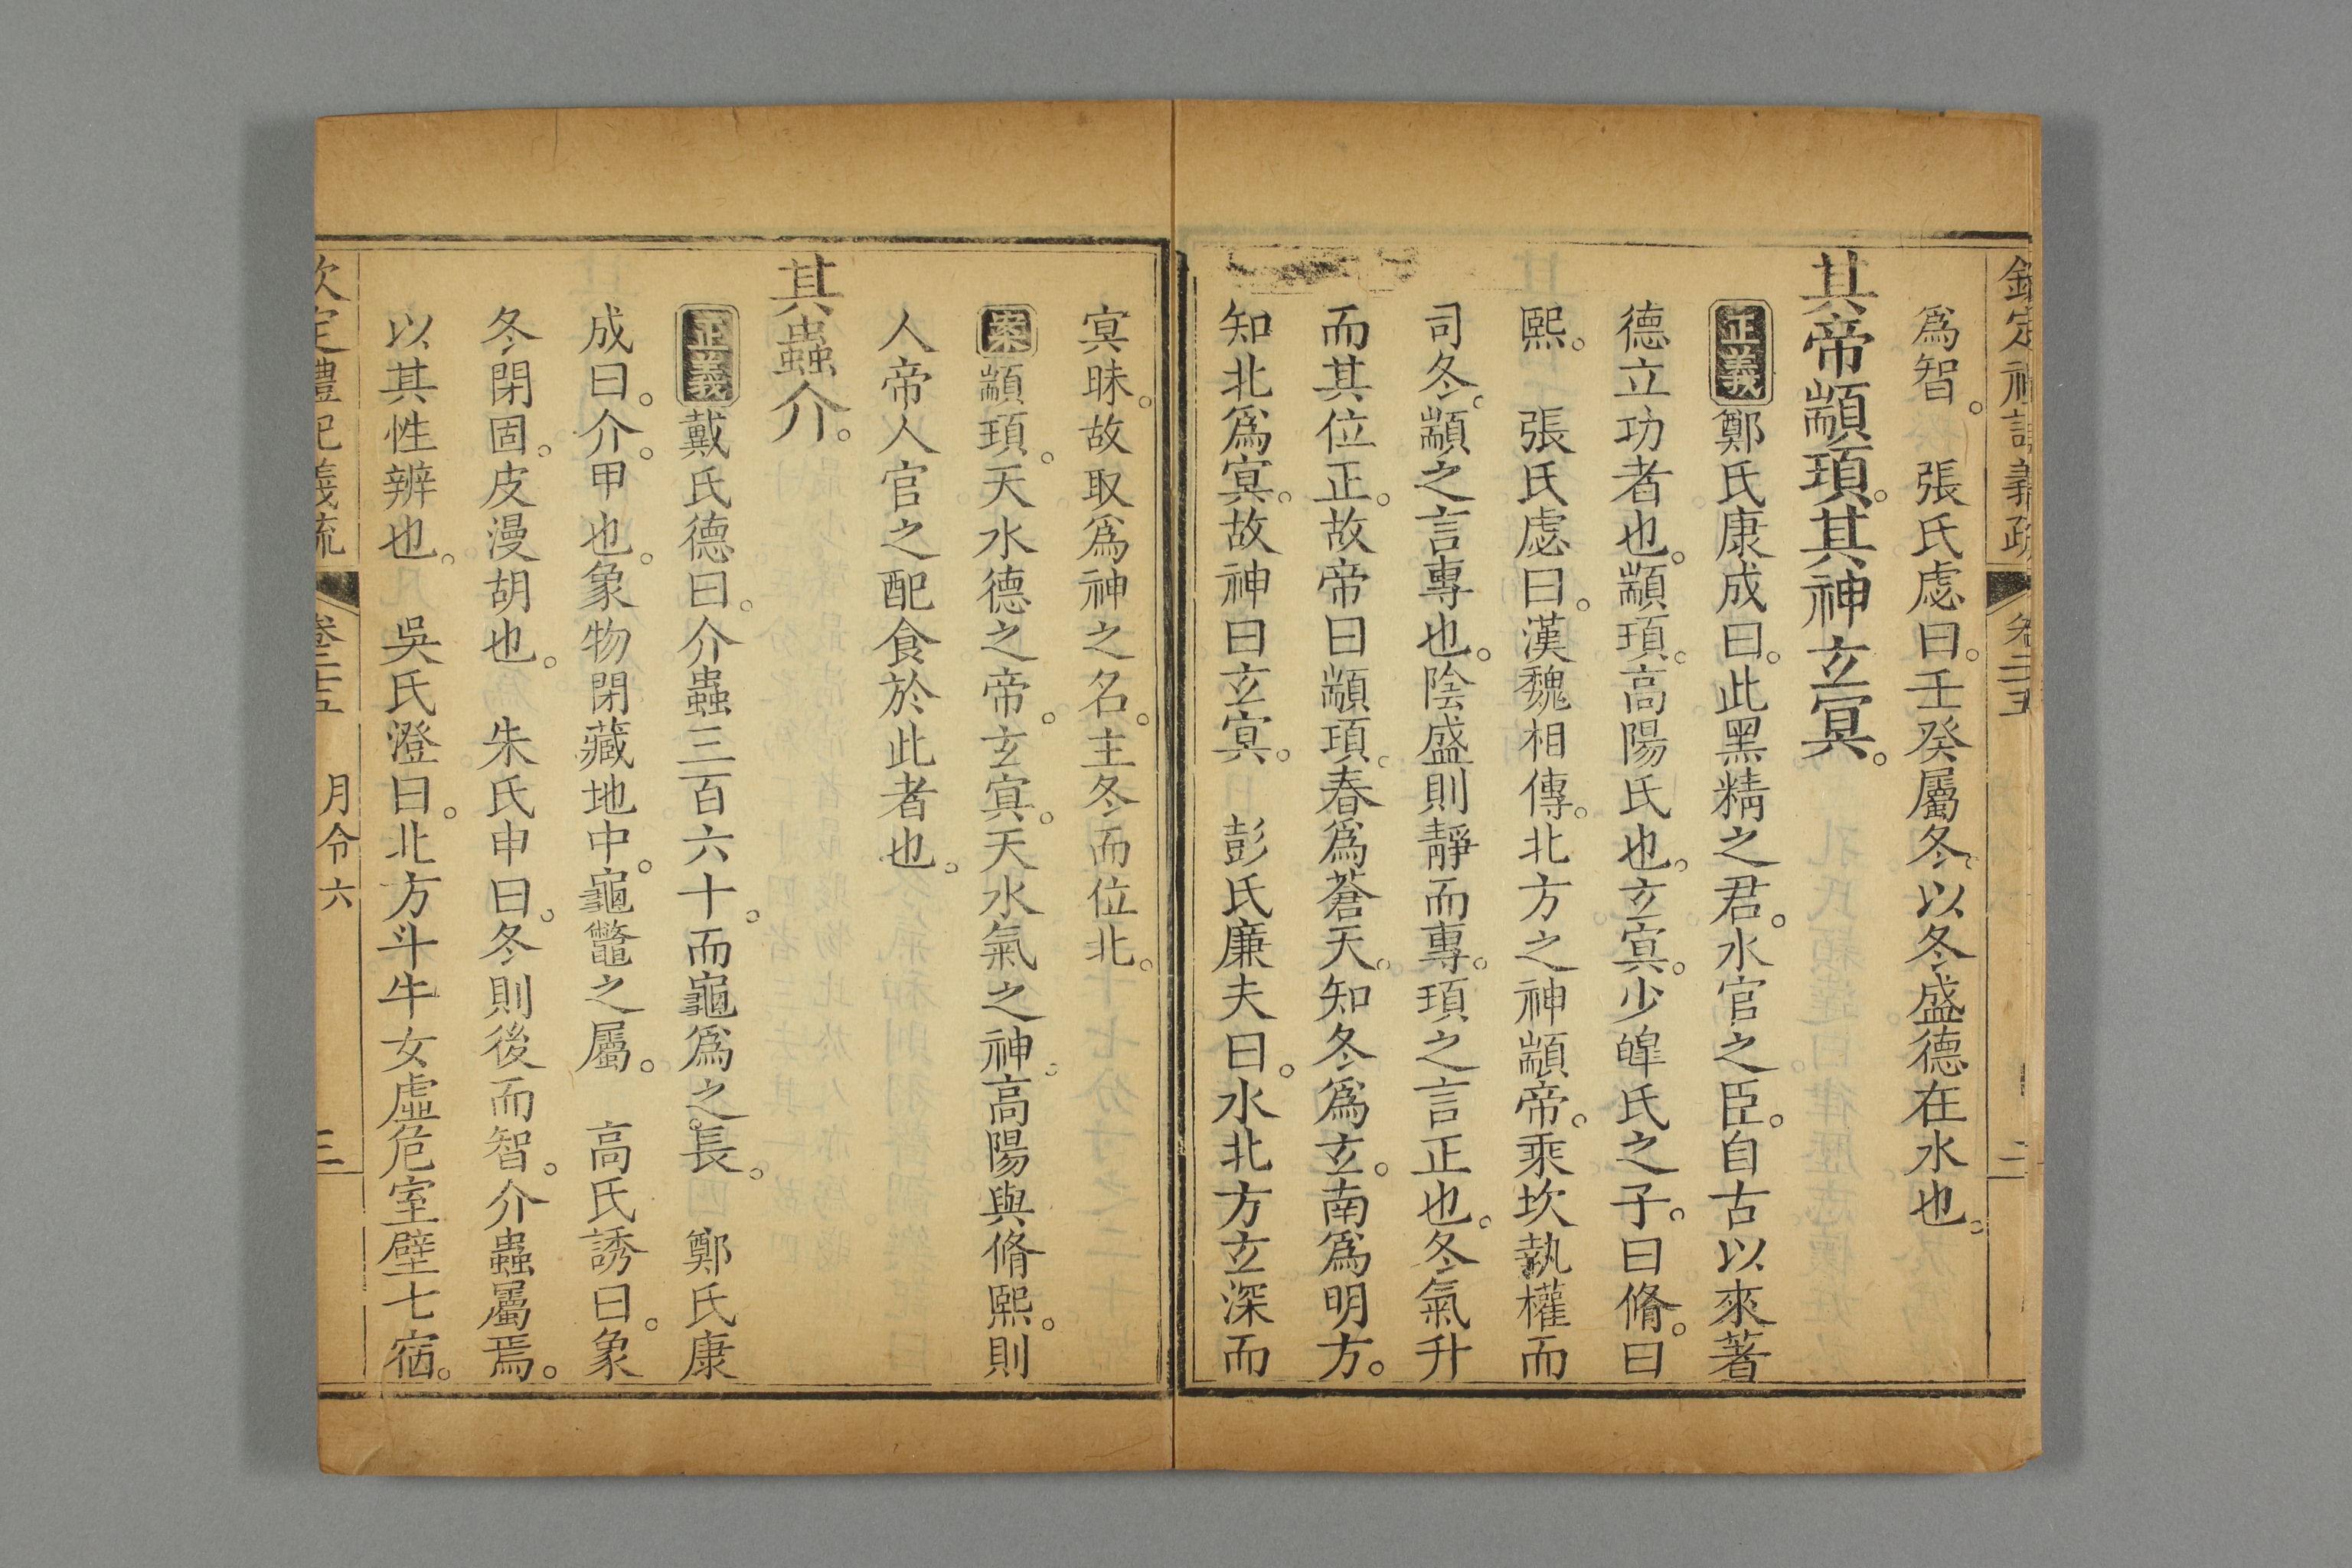 欽定禮記義疏 卷二十五 二
爲智。 張氏慮曰。壬癸屬冬。以冬盛德在水也。
其帝顓頊。其神玄冥。
正義 鄭氏康成曰。此黑精之君。水官之臣。自古以來著
德立功者也。顓頊。高陽氏也。玄冥。少皥氏之子。曰脩。曰
熙。 張氏慮曰。漢魏相傳。北方之神顓帝。乘坎執權而
司冬。顓之言專也。陰盛則靜而專。頊之言正也。冬氣升
而其位正。故帝曰顓頊。春爲蒼天。知冬爲玄。南爲明方。
知北爲冥。故神曰玄冥。 彭氏廉夫曰。水北方玄深而
冥昧。故取爲神之名。主冬而位北。
案 顓頊。天水德之帝。玄冥。天水氣之神。高陽與脩熙。則
人帝人官之配食於此者也。
其蟲介。
正義 戴氏德曰。介蟲三百六十。而龜爲之長。 鄭氏康
成曰。介。甲也。象物閉藏地中。龜鼈之屬。 高氏誘曰。象
冬閉固。皮漫胡也。 朱氏申曰。冬則後而智。介蟲屬焉。
以其性辨也。 吳氏澄曰。北方斗牛女虛危室壁七宿。
欽定禮記義疏 卷二十五 月令六 三